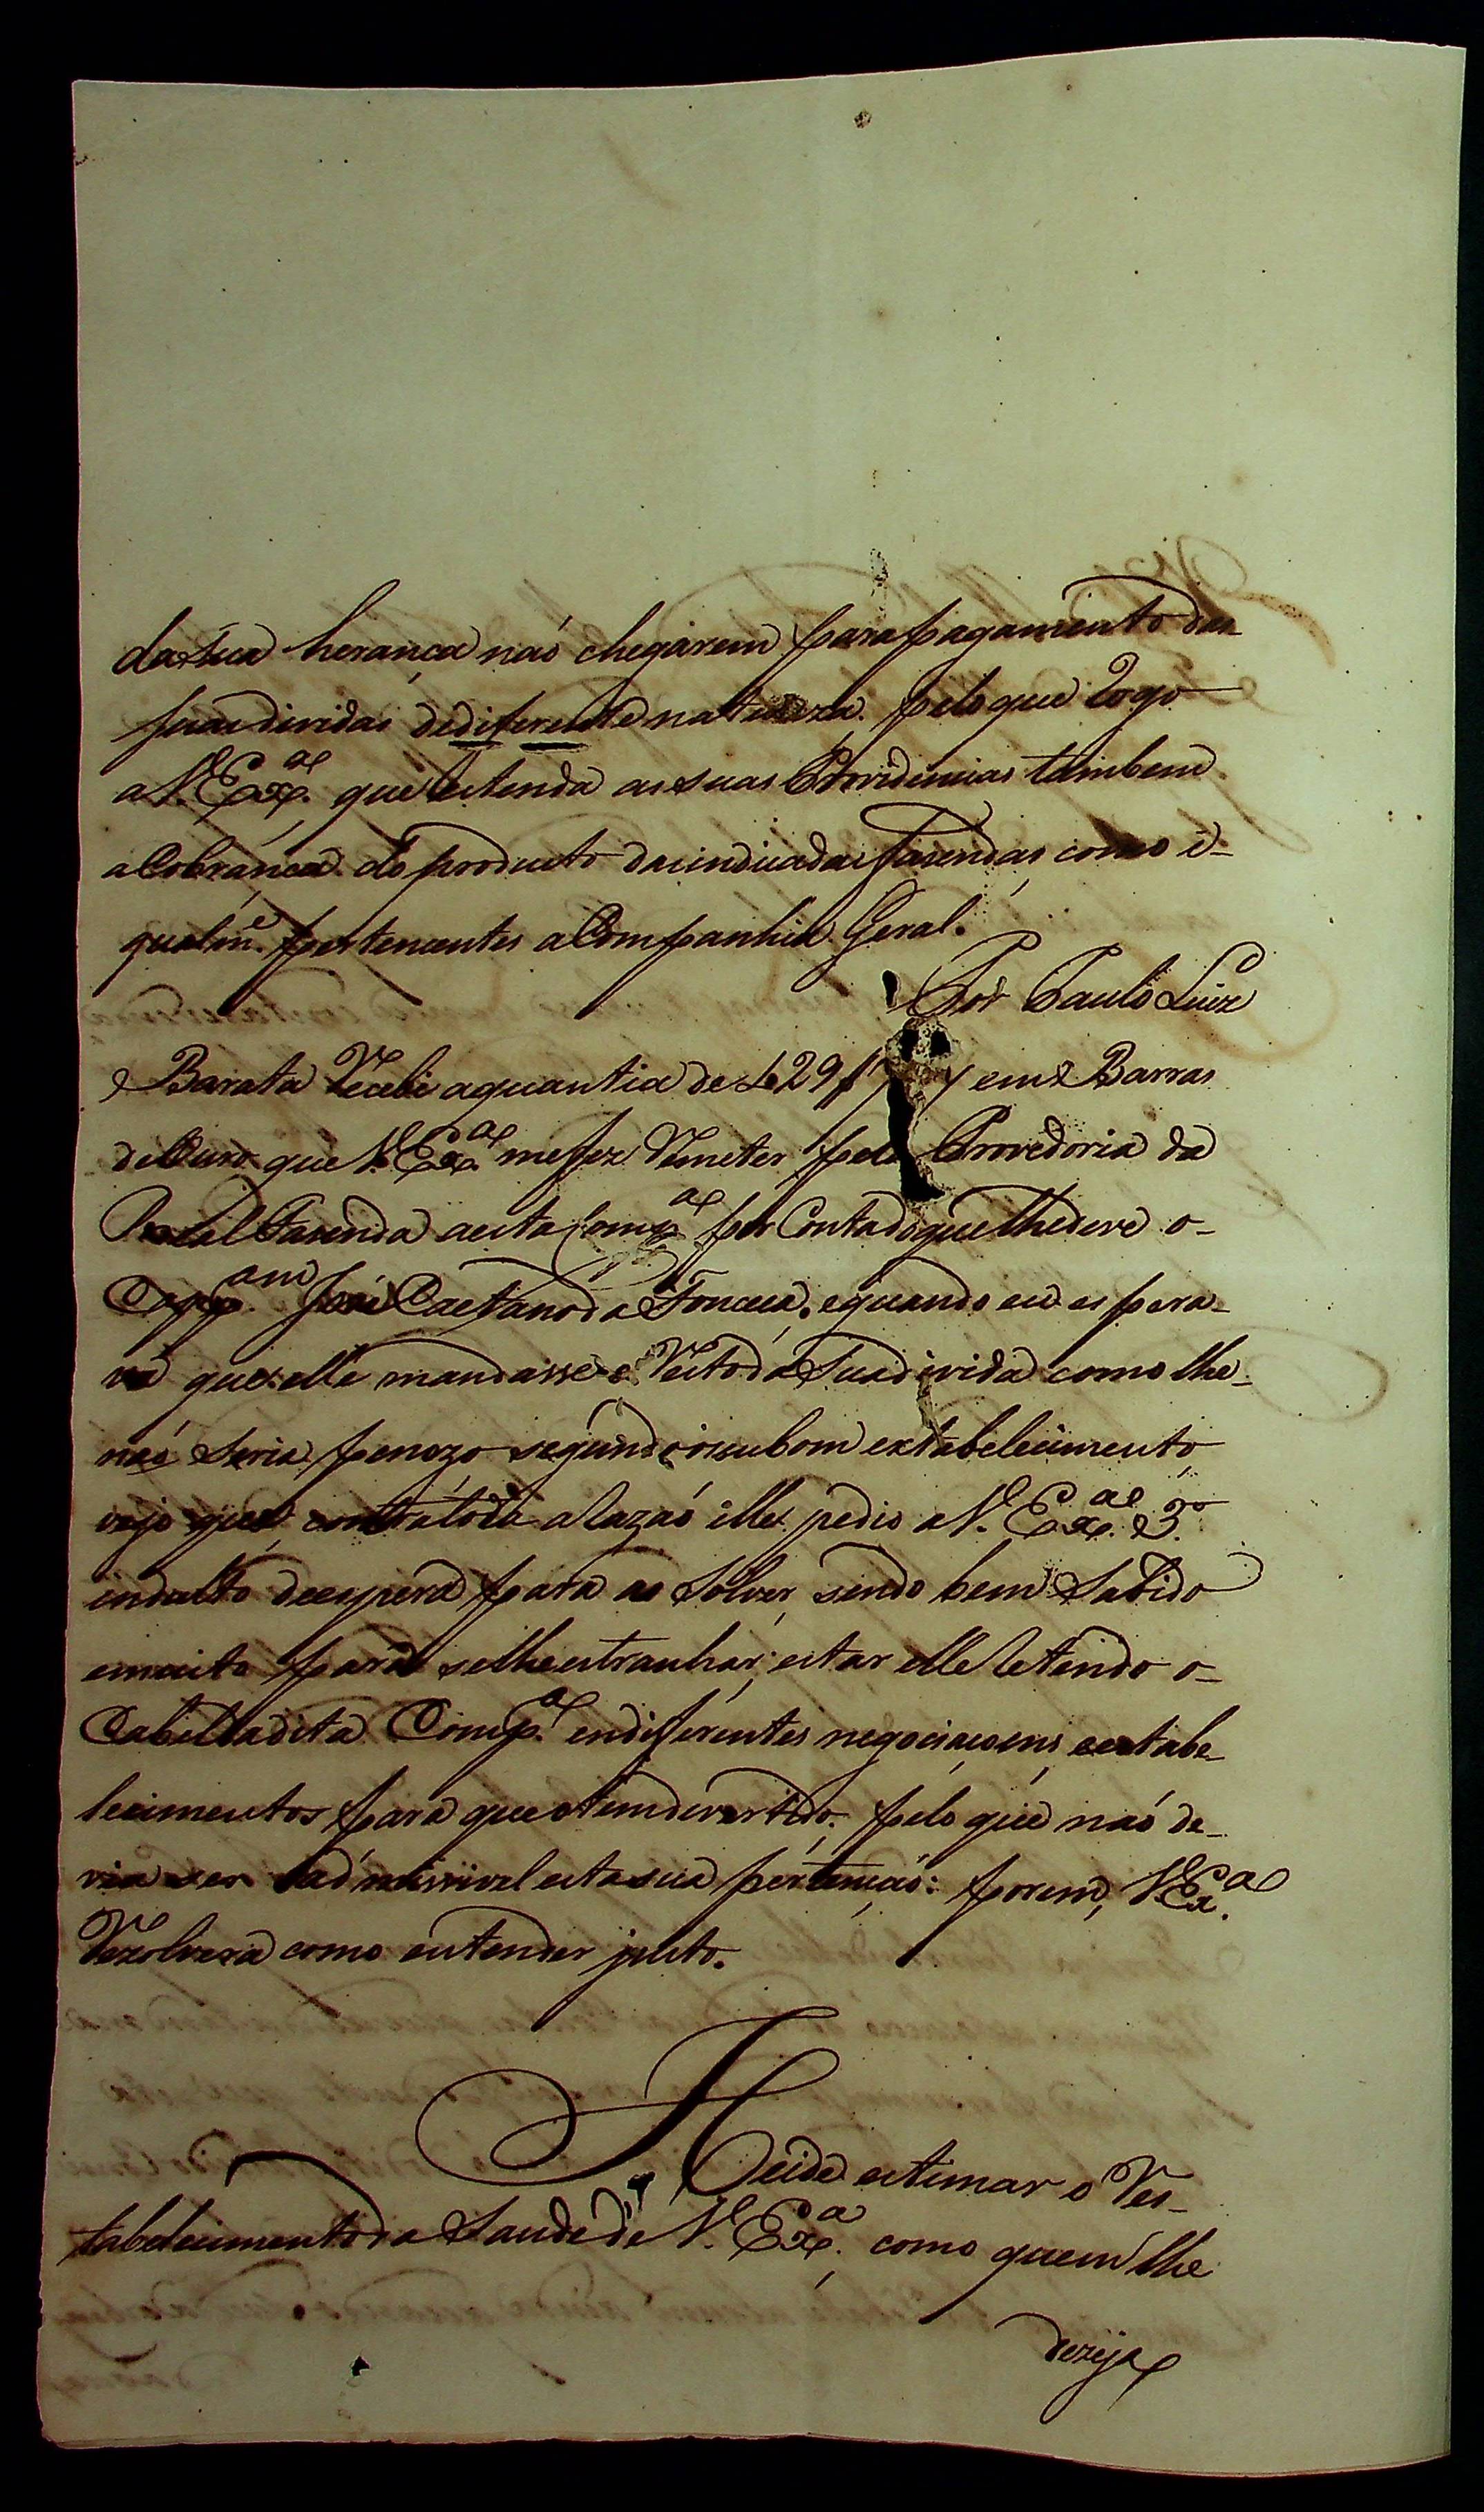 da sua herança naó chegarem para pagamento das
suas dividas de diferente natureza. pelo que Rogo
a V. Exa. que estenda as suas Providencias tambem
a Cobrança do producto das indicadas Fasendas, como i-
gualme. pertencentes a Companhia Geral.
Por Paulo Luiz
Barata Recebi a quantia de 429$7 em 2 Barras
de Ouro que V. Exa. me fez Remeter pela Provedoria da
Real Fasenda a esta Compa. por Conta do que lhe deve o-
Cappam. José Caetano da Fonceca, e quando eu espera-
va que elle mandasse o Resto da Sua divida como lhe-
naó Seria penozo segundo o seu bom extabelecimento,
vejo que contra toda a Razaó elle pedio a V. Exa. 3.o
indulto de espera para as Solver, sendo bem Sabido
e muito para se lhe estranhar, estar elle Retendo o-
Cabedal da dita Compa. en diferentes negociacoens, e extabe-
lecimentos para que o tem divertido. pelo que naó de-
via ser admissivel esta sua pertençaó: porem, V. Exa.
Rezolvera como entender justo.
Hei de estimar o Res-
tabelecimento da Saude de V. Exa. como quem lhe
dezeja